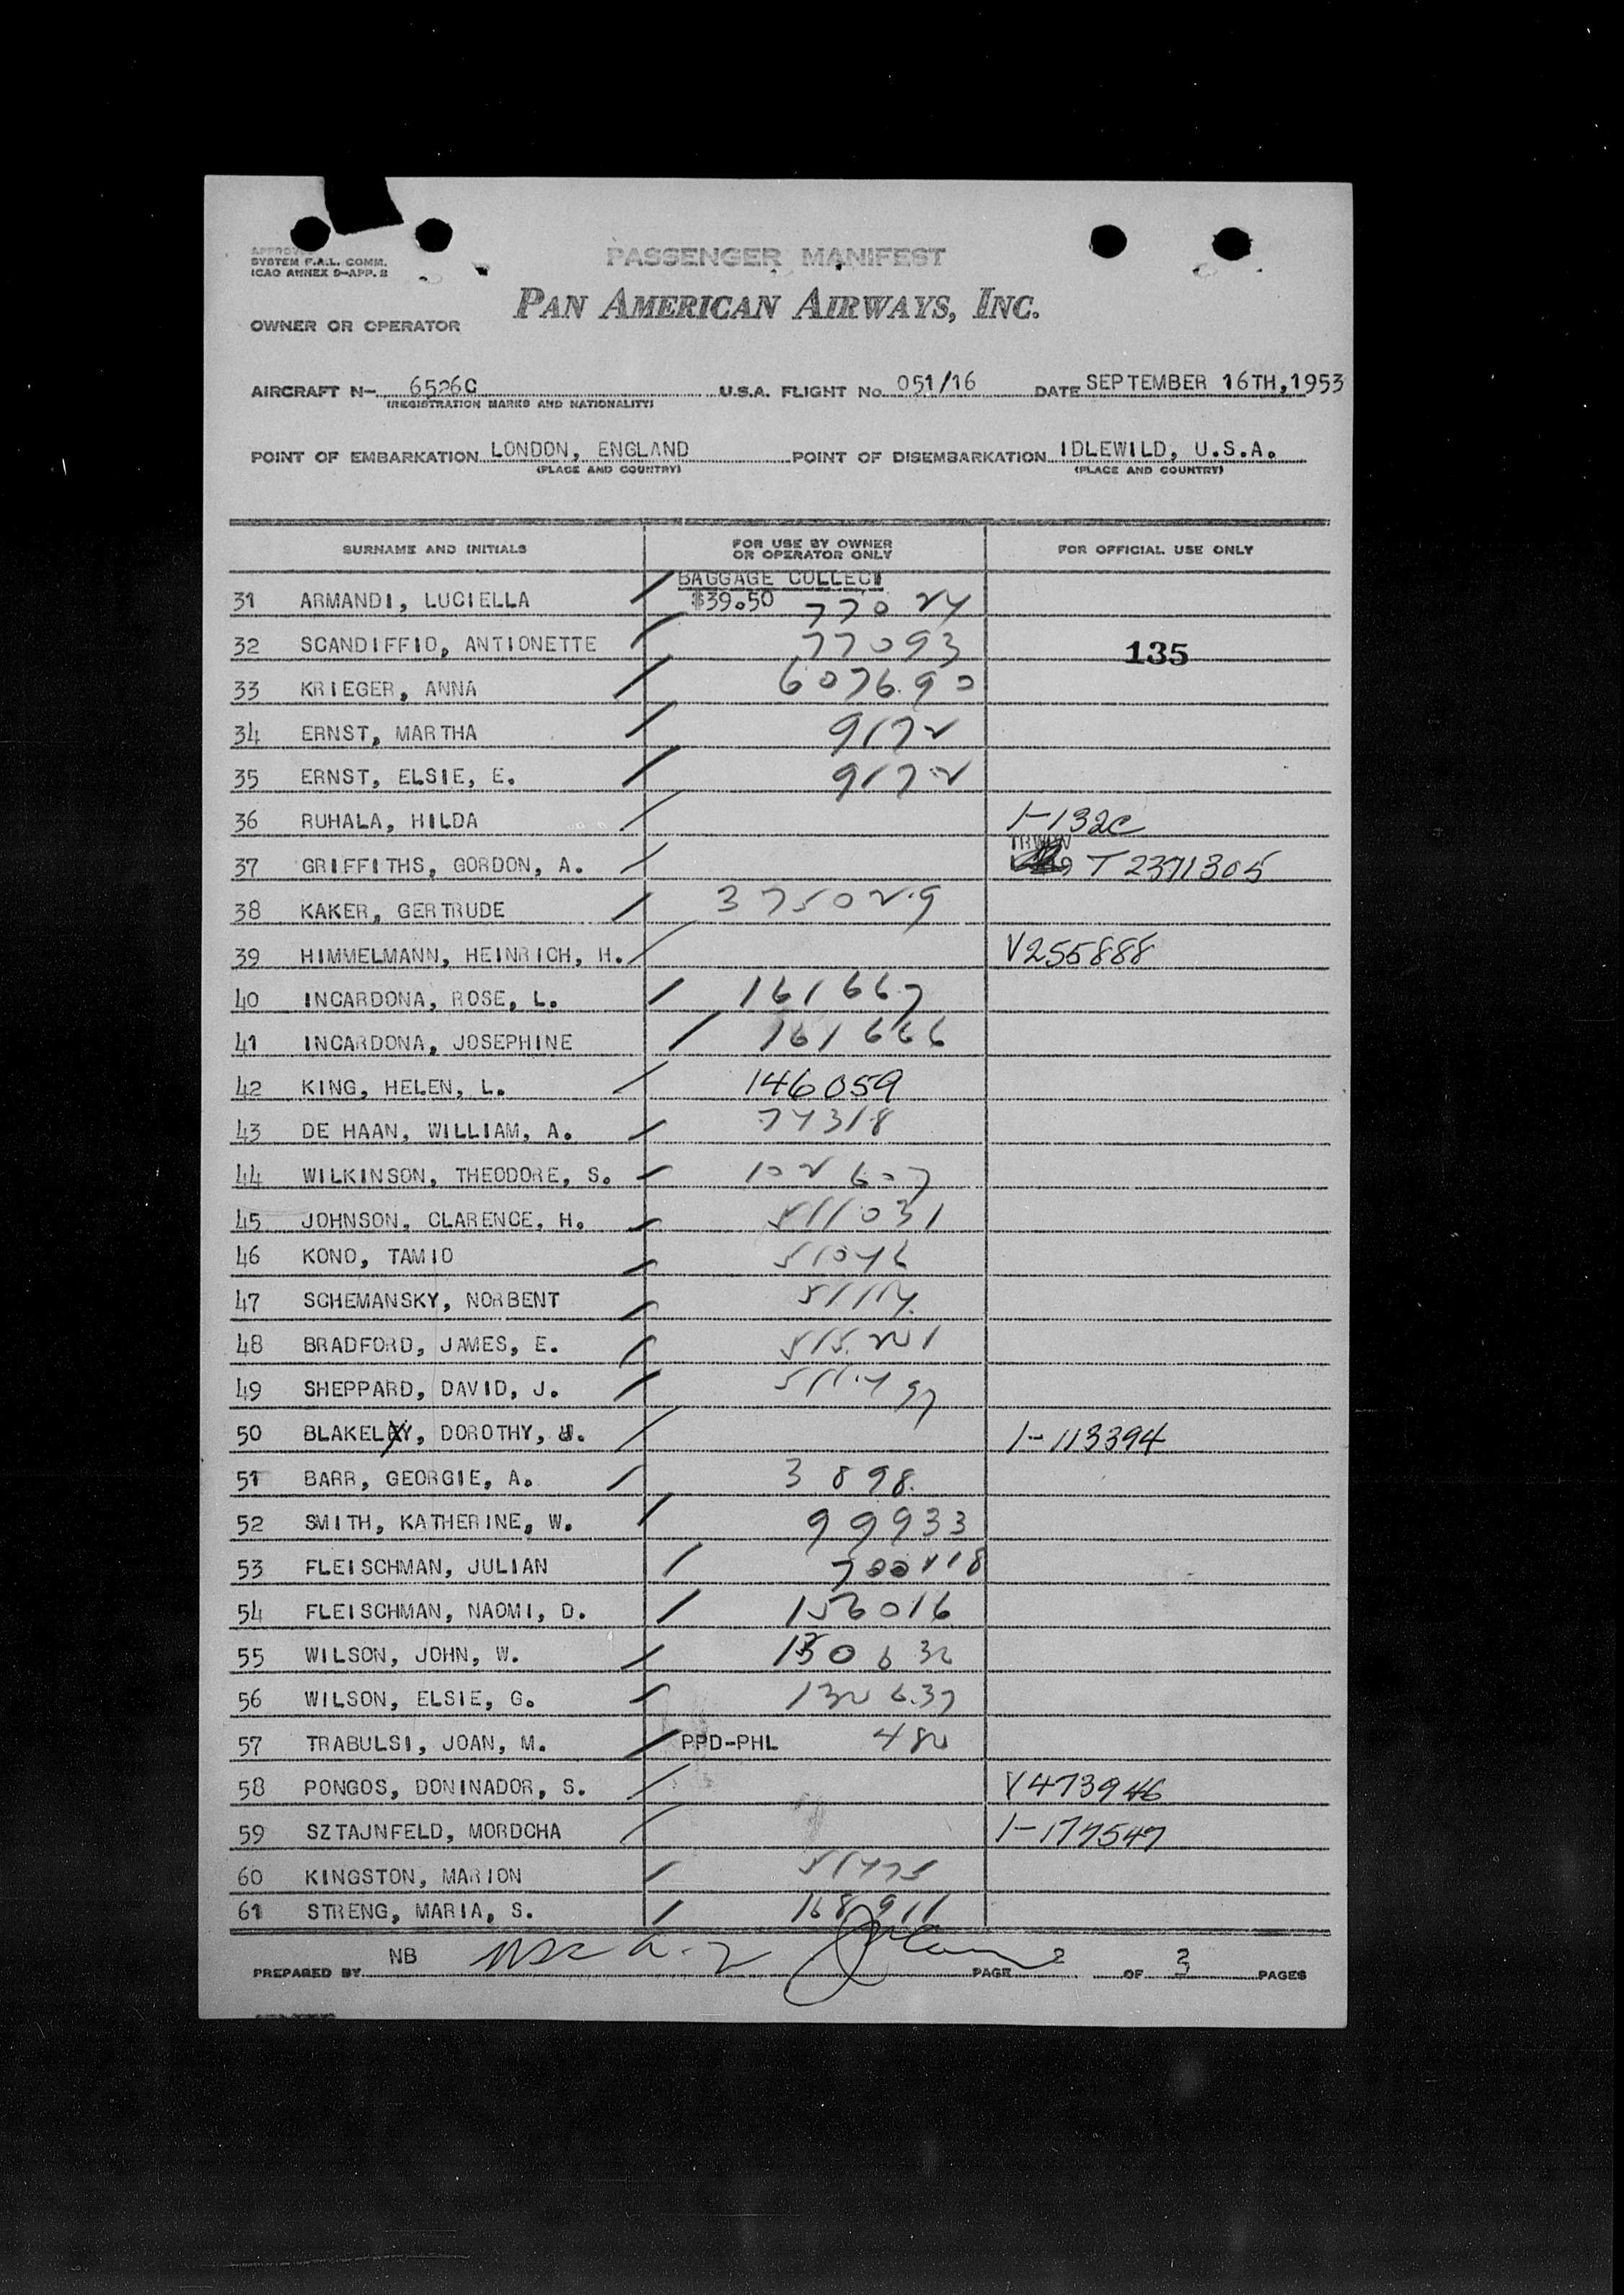 APPROVED
SYSTEM F.A.L. COMM.
ICAO ANNEX 9-APP. 2
PASSENGER MANIFEST
PAN AMERICAN AIRWAYS, INC.
OWNER OR OPERATOR
AIRCRAFT N- 6526C U.S.A. FLIGHT NO. 051/16 DATE SEPTEMBER 16TH, 1953
(REGISTRATION MARKS AND NATIONALITY)
POINT OF EMBARKATION LONDON, ENGLAND POINT OF DISEMBARKATION IDLEWILD, U.S.A.
(PLACE AND COUNTRY) (PLACE AND COUNTRY)
SURNAME AND INITIALS FOR USE BY OWNER OR OPERATOR ONLY FOR OFFICIAL USE ONLY
BAGGAGE COLLECT
31 ARMANDI, LUCIELLA / $39.50 77024
32 SCANDIFFIO, ANTIONETTE / 77093 135
33 KRIEGER, ANNA / 607690
34 ERNST, MARTHA / 9172
35 ERNST, ELSIE, E. / 9172
36 RUHALA, HILDA / 1-132C
TRWOV
37 GRIFFITHS, GORDON, A. / T2371305
38 KAKER, GERTRUDE / 375029
39 HIMMELMANN, HEINRICH, H. / V255888
40 INCARDONA, ROSE, L. / 161667
41 INCARDONA, JOSEPHINE / 161666
42 KING, HELEN, L. / 146059
43 DE HAAN, WILLIAM, A. / 74318
44 WILKINSON, THEODORE, S. / 102607
45 JOHNSON, CLARENCE, H. / 511031
46 KONO, TAMIO / 51046
47 SCHEMANSKY, NORBENT / 51114
48 BRADFORD, JAMES, E. / 515201
49 SHEPPARD, DAVID, J. / 511497
50 BLAKELEY, DOROTHY, J. / 1-113394
51 BARR, GEORGIE, A. / 3898
52 SMITH, KATHERINE, W. / 99933
53 FLEISCHMAN, JULIAN /
54 FLEISCHMAN, NAOMI, D. / 156016
55 WILSON, JOHN, W. /
56 WILSON, ELSIE, G. / 132637
57 TRABULSI, JOAN, M. / PPD-PHL 482
58 PONGOS, DONINADOR, S. / V473946
59 SZTAJNFELD, MORDCHA / 1-177547
60 KINGSTON, MARION / 51475
61 STRENG, MARIA, S. / 168911
PREPARED BY NB PAGE 2 OF 3 PAGES